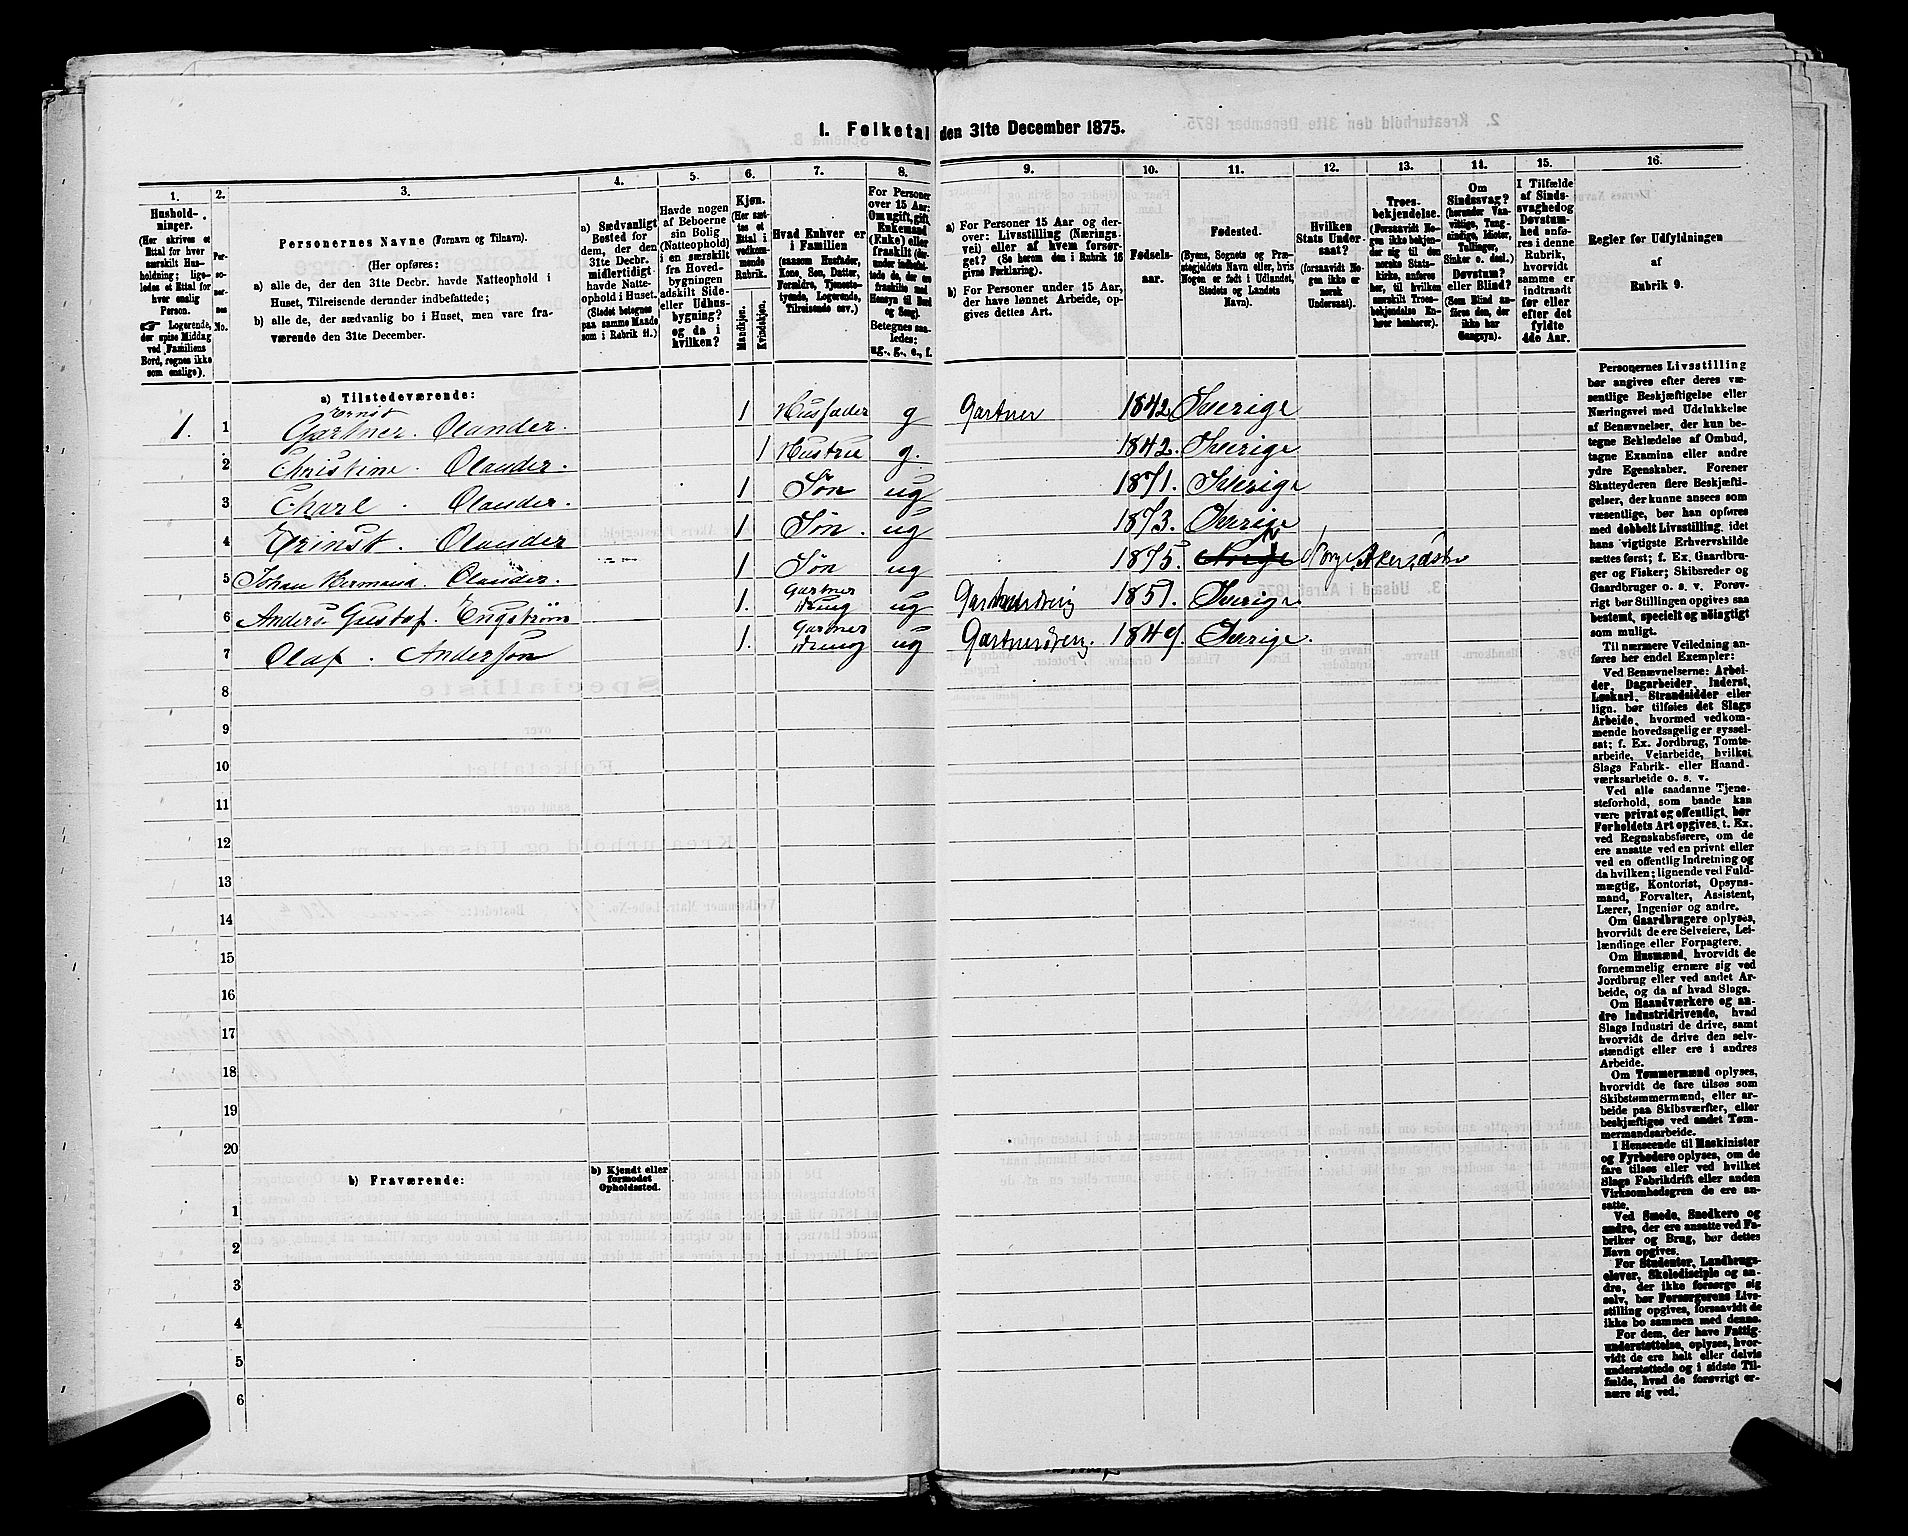 1. Folketal den 31te December 1875.
1. 2. 3. 4. 5. 6. 7. 8. 9. 10. 11. 12. 13. 14. 15. 16.
Hushold-
ninger.
(Her skrives et
Ettal for hver
særskilt Hus-
holdning; lige-
ledes et Ettal for
hver enslig
Person.
☞ Logerende,
der spise Middag
ved Familiens
Bord, regnes ikke
som enslige).
Personernes Navne (Fornavn og Tilnavn).
(Her opføres:
a) alle de, der den 31te Decbr. havde Natteophold i
Huset, Tilreisende derunder indbefattede;
b) alle de, der sædvanlig bo i Huset, men vare fra-
værende den 31te December.
a) Sædvanligt
Bosted for
dem, der den
31te Decbr.
midlertidigt
havde Natte-
ophold i Huset.
(Stedet betegnes
paa samme Maade
som i Rubrik 11.)
Havde nogen
af Beboerne
sin Bolig
(Natteophold)
i en særskilt
fra Hoved-
bygningen
adskilt Side-
eller Udhus-
bygning?
og da i
hvilken?
Kjøn.
(Her sæt-
tes et
Ettal i
vedkom-
mende
Rubrik.
Mandkjøn.
Kvindekjøn.
Hvad Enhver er
i Familien
(saasom Husfader,
Kone, Søn, Datter,
Forældre, Tjeneste-
tyende, Logerende,
Tilreisende osv.)
For Personer
over 15 Aar:
Om ugift, gift,
Enkemand
(Enke) eller
fraskilt
Betegnes saa-
ledes:
ug., g., e., f.
a) For Personer 15 Aar og der-
over: Livsstilling (Nærings-
vei) eller af hvem forsør-
get? (Se herom den i Rubrik 16
givne Forklaring).
b) For Personer under 15 Aar,
der have lønnet Arbeide, op-
gives dettes Art.
Fødsels-
aar.
Fødested.
(Byens, Sognets og Præ-
stegjeldets Navn eller, hvis
Nogen er født i Udlandet,
Stedets og Landets
Navn).
Hvilken
Stats Under-
saat?
(forsaavidt No-
gen ikke er
norsk
Undersaat).
Troes-
bekjendelse.
(Forsaavidt No-
gen ikke bekjen-
der sig til den
norske Stats-
kirke, anføres
her, til hvilken
særskilt Troes-
bekjendelse En-
hver henhører).
Om
Sindssvag?
(herunder Van-
vittige, Tung-
sindige, Idioter,
Tullinger,
Sinker o. desl.)
Døvstum?
eller Blind?
(Som Blind an-
føres den, der
ikke har
Gangsyn).
I Tilfælde
af Sinds-
svaghed og
Døvstum-
hed anfø-
res i denne
Rubrik,
hvorvidt
samme er
indtraadt
før eller
efter det
fyldte
4de Aar.
Regler for Udfyldningen
af
Rubrik 9.
a) Tilstedeværende:
1. 1 Gartner Ernst Olander. 1 Husfader g Gartner 1842 Sverige
2 Christine Olander. 1 Hustru g. 1842. Sverige
3 Charl Olander. 1 Søn ug 1871. Sverige
4 Erinst Olander 1 Søn. ug 1873. Sverige
5 Johan Hermand. Olander. 1 Søn ug 1875. Norge,
6 Anders Gustaf. Engstrøm 1. Gartner dreng ug 1851. Sverige
7 Olaf Anderson 1. Gartner dreng ug 1849. Sverige.
8
9
10
11
12
13
14
15
16
17
18
19
20
b) Fraværende:
b) Kjendt eller
formodet
Opholdssted.
1
2
3
4
5
6
Personernes Livsstilling
bør angives efter deres væ-
sentlige Beskjæftigelse eller
Næringsvei med Udelukkelse
af Benævnelser, der kun be-
tegne Beklædelse af Ombud,
tagne Examina eller andre
ydre Egenskaber. Forener
Skatteyderen flere Beskjæfti-
gelser, der kunne ansees som
væsentlige, bør han opføres
med dobbelt Livsstilling, idet
hans vigtigste Erhvervskilde
sættes først; f. Ex. Gaardbru-
ger og Fisker; Skibsreder og
Gaardbruger o. s. v. Forøv-
rigt bør Stillingen opgives saa
bestemt, specielt og nøiagtigt
som muligt.
Til nærmere Veiledning an-
føres her endel Exempler:
Ved Benævnelserne: Arbei-
der, Dagarbeider, Inderst,
Løskarl, Strandsidder eller
lign. bør tilføies det Slags
Arbeide, hvormed vedkom-
mende hovedsagelig er syssel-
sat; f. Ex. Jordbrug, Tomte-
arbeide, Veiarbeide, hvilket
Slags Fabrik- eller Haand-
værksarbeide o. s. v.
Ved alle saadanne Tjene-
steforhold, som baade kan
være privat og offentligt, bør
Forholdets Art opgives, t. Ex.
ved Regnskabsførere, om de
ere ansatte ved en privat eller
ved en offentlig Indretning og
da hvilken; lignende ved Fuld-
mægtig, Kontorist, Opsyns-
mand, Forvalter, Assistent,
Lærer, Ingeniør og andre.
Om Gaardbrugere oplyses,
hvorvidt de ere Selveiere, Lei-
lændinge eller Forpagtere.
Om Husmænd, hvorvidt de
fornemmelig ernære sig ved
Jordbrug eller ved andet Ar-
beide, og da af hvad Slags.
Om Haandværkere og an-
dre Industridrivende, hvad
Slags Industri de drive, samt
hvorvidt de drive den selv-
stændigt eller ere i andres
Arbeide.
Om Tømmermænd oplyses,
hvorvidt de fare tilsøs som
Skibstømmermænd, eller ar-
beide paa Skibsværfter, eller
beskjæftiges ved andet Tøm-
mermandsarbeide.
I Henseende til Maskinister
og Fyrbødere oplyses, om de
fare tilsøs eller ved hvilket
Slags Fabrikdrift eller anden
Virksomhedsgren de ere an-
satte.
Ved Smede, Snedkere og
andre, der ere ansatte ved Fa-
briker og Brug, bør dettes
Navn opgives.
For Studenter, Landbrugs-
elever, Skoledisciple og an-
dre, der ikke forsørge sig
selv, bør Forsørgerens Livs-
stilling opgives, forsaavidt de
ikke bo sammen med denne.
For dem, der have Fattig-
understøttelse, oplyses, hvor-
vidt de ere helt eller delvis
understøttede og i sidste Til-
fælde, hvad de forøvrigt er-
nære sig ved.